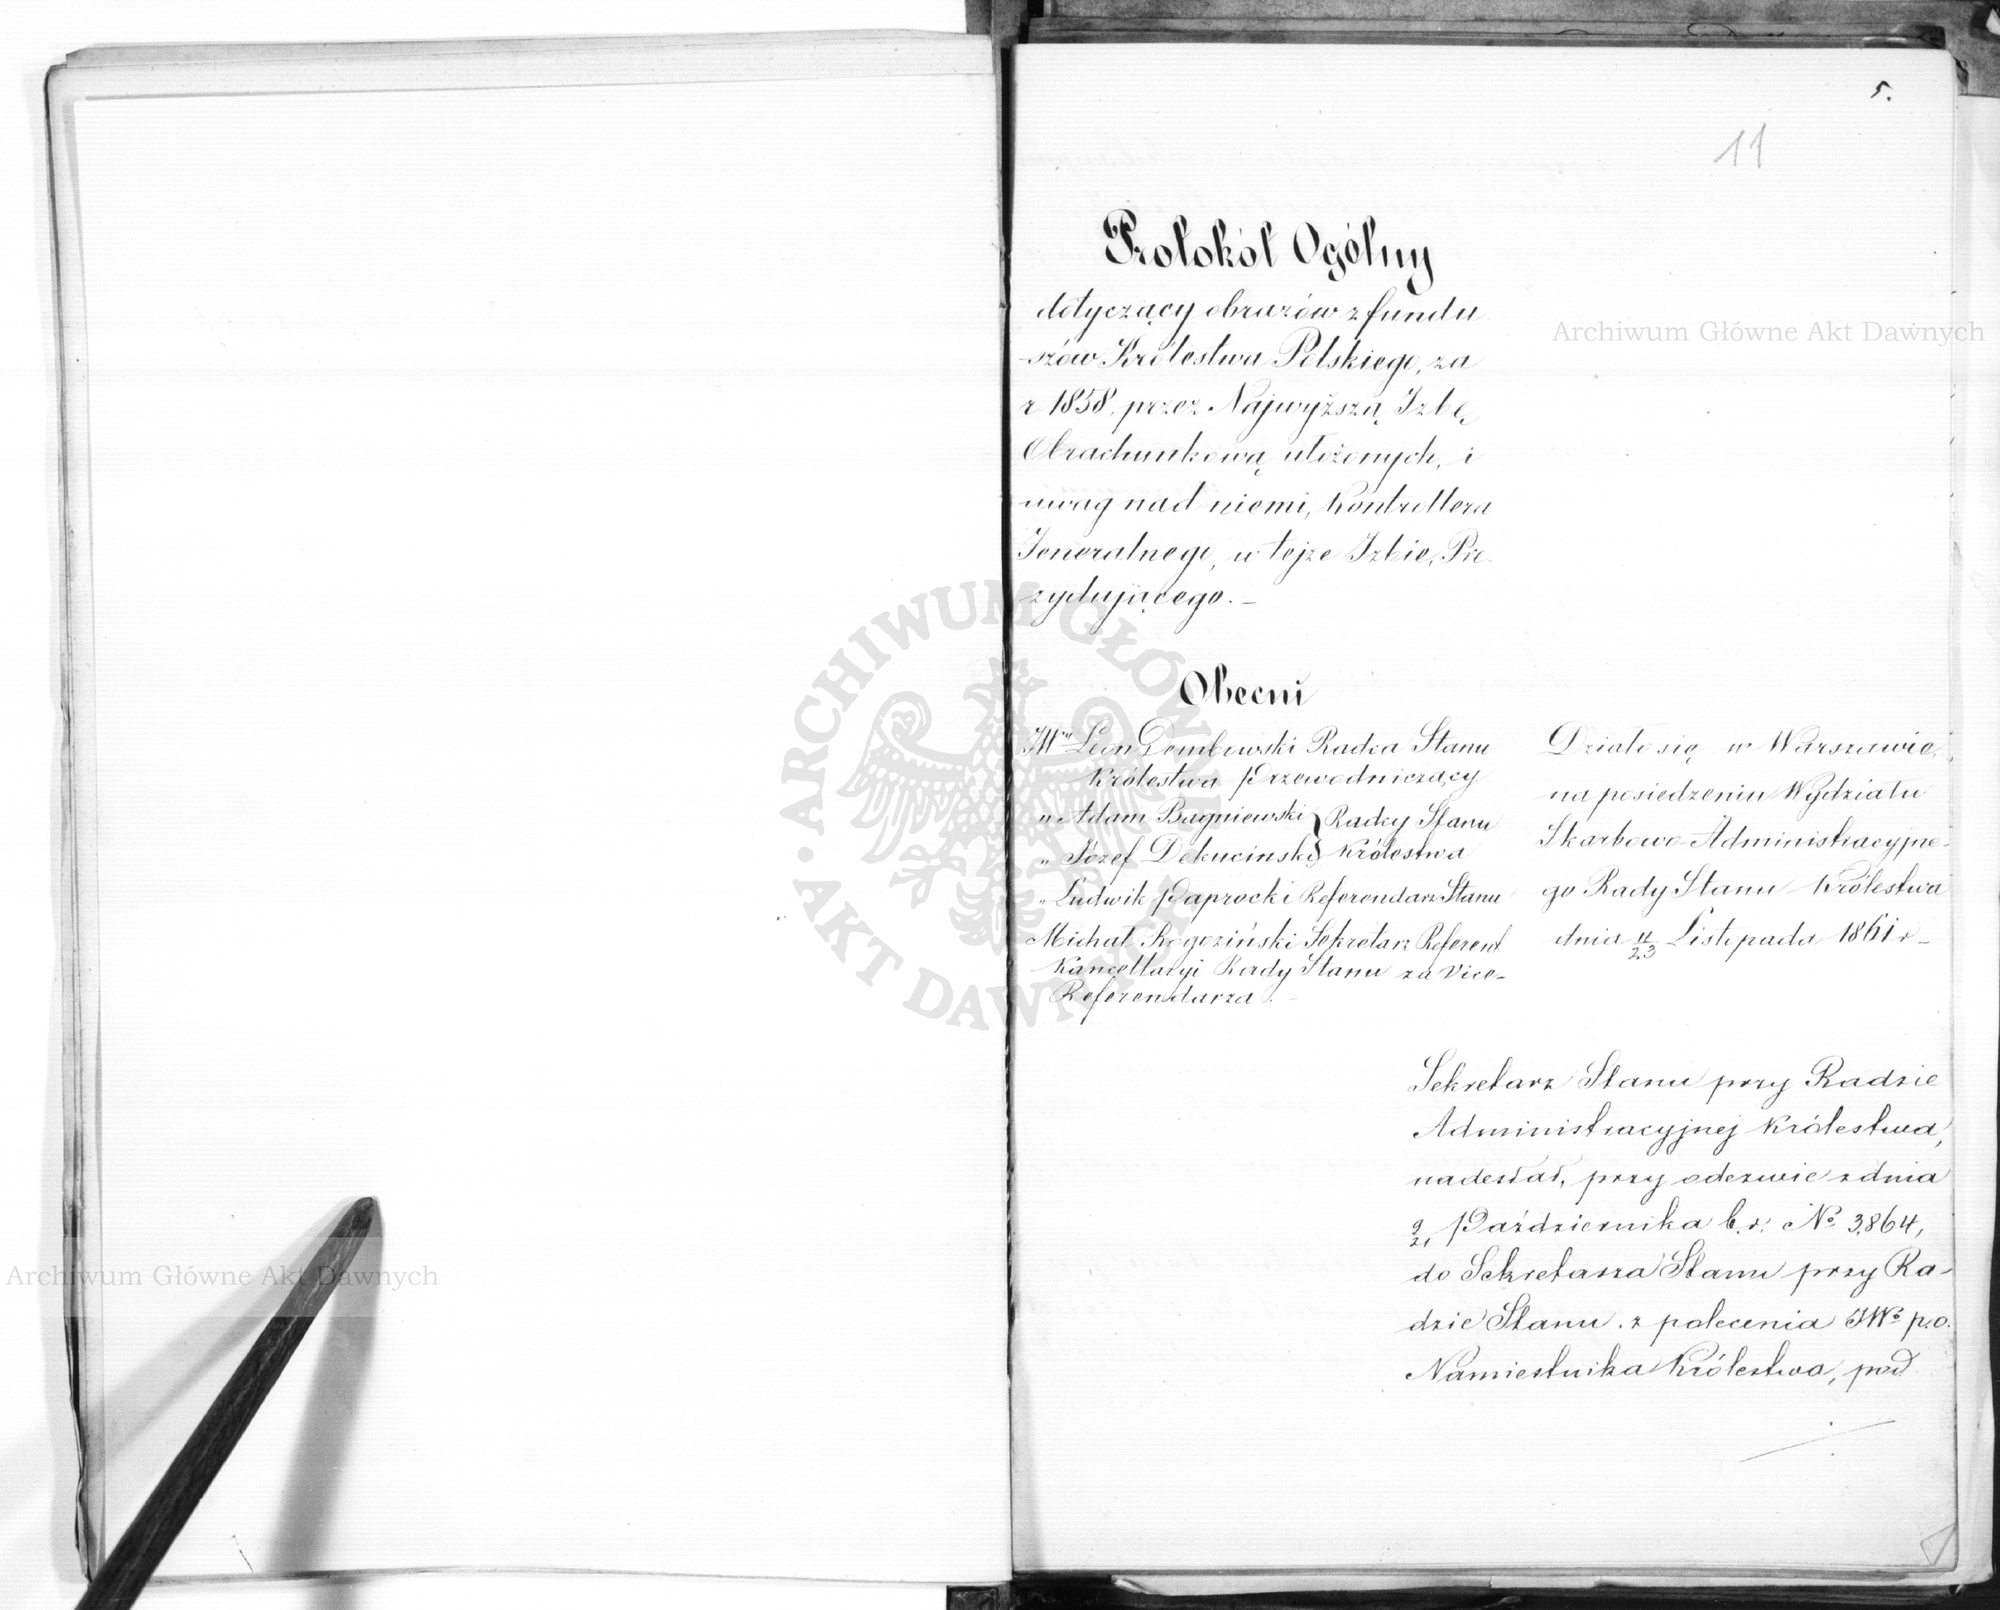 5.
11
Protokół Ogólny
dotyczący obrazów z fundu
szów Królestwa Polskiego, za
r 1858, przez Najwyższą Izbę
Obrachunkową ułożonych, i
uwag nad niemi, Kontrollera
Jeneralnego, w tejże Izbie, Pre
zydującego. –
Obecni
JW. Leon Dembowski Radca Stanu
Królestwa Przewodniczący
" Adam Bagniewski } Radcy Stanu
" Józef Dekuciński } Królestwa
" Ludwik Paprocki Referendarz Stanu
Michał Rogoziński Sekretarz Referent
Kancellaryi Rady Stanu za Vice-
Referendarza. –
Działo się w Warszawie,
na posiedzeniu Wydziału
Skarbowo-Administracyjne-
go Rady Stanu Królestwa
dnia 11/23 Listopada 1861 r –
Sekretarz Stanu przy Radzie
Administracyjnej Królestwa,
nadesłał, przy odezwie z dnia
9/21 Października b.r. No 3,864,
do Sekretarza Stanu przy Ra-
dzie Stanu z polecenia JWo p.o.
Namiestnika Królestwa, pod
Archiwum Główne Akt Dawnych
ARCHIWUM GŁÓWNE · AKT DAWNYCH ·
Archiwum Główne Akt Dawnych